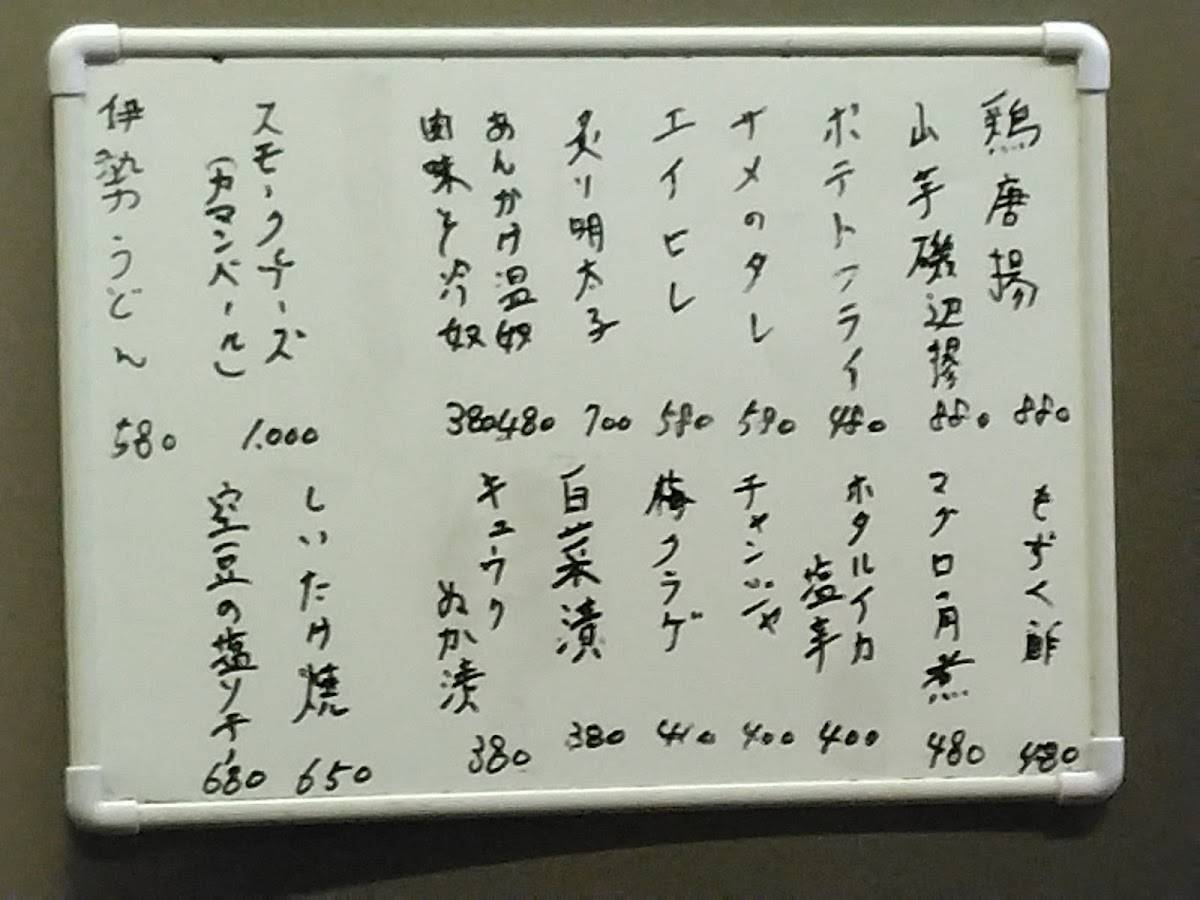 鶏唐揚 880
山芋磯辺揚 880
ポテトフライ 480
サメのタレ 590
エイヒレ 580
炙り明太子 700
あんかけ温奴 480
肉味そ冷奴 380
スモークチーズ
(カマンベール) 1.000
伊勢うどん 580
もずく酢 480
マグロ角煮 480
ホタルイカ
塩辛 400
チャンジャ 400
梅クラゲ 410
白菜漬 380
キュウリ
ぬか漬 380
しいたけ焼 650
空豆の塩ソテー 680